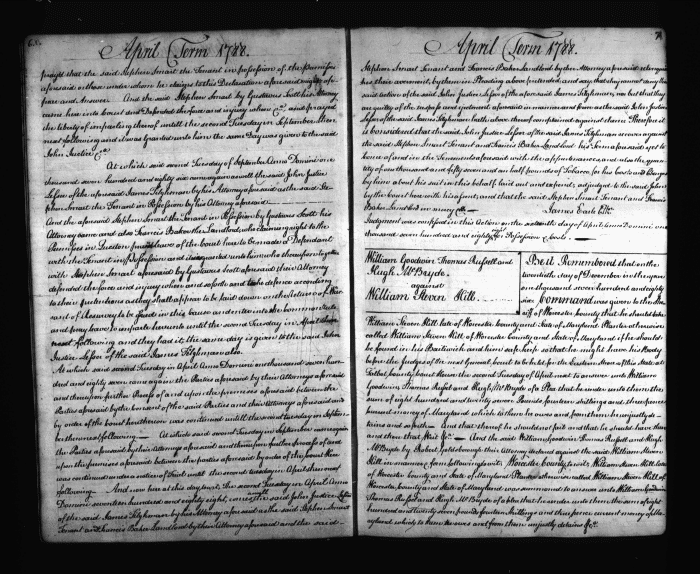 April Term 1788.
prays that the said Stephen Smart the Tenant in possession of the premises
aforesaid or those under whom he claims to this Declaration aforesaid might ap-
pear and Answer. And the said Stephen Smart by Gustavus Scott his Attorney
came here into Court and Defended the force and injury when &c. and prayed
the liberty of imparling thereof untill the second Tuesday in September then
next following and it was granted unto him the same Day was given to the said
John Justice &c.
At which said second Tuesday of September Anno Domini one
thousand seven hundred and eighty six came again as well the said John Justice
Lessee of the aforesaid James Fitzhman by his Attorney aforesaid as the said Ste-
phen Smart the Tenant in Possession by his Attorney aforesaid
And the aforesaid Stephen Smart the Tenant in Possession by Gustavus Scott his
Attorney came and also Francis Baker the Landlord, who claiming right to the
Premises in Question prayed leave of the Court here to be made a Defendant
with the Tenant in Possession and it is granted unto him who therefore together
with Stephen Smart aforesaid by Gustavus Scott aforesaid their Attorney
defended the force and injury when and so forth and take defence according
to their pretentions as they shall appear to be laid down on the Return of War-
rant of Resurvey to be issued in this cause and enter into the common rule
and pray leave to imparle hereunto until the second Tuesday in April then
next following and they had it, the same day is given to the said John
Justice Lessee of the said James Fitzhman also.
At which said second Tuesday in April Anno Domini one thousand seven hun-
dred and eighty seven came again the Parties aforesaid by their Attorneys aforesaid
and thereupon further Process of and upon the premises aforesaid between the
Parties aforesaid by the consent of the said Parties and their Attorneys aforesaid and
by order of the Court here thereon was continued untill the second tuesday in Septem-
ber then next following. At which said second Tuesday in September came again
the Parties aforesaid by their Attorneys aforesaid and thereupon further process of and
upon the premises aforesaid between the parties aforesaid by order of the Court here
was continued under a notice of Trial untill the second tuesday in April then next
following. And now here at this day, to wit, the second Tuesday in April Anno
Domini seventeen hundred and eighty eight, comes the said John Justice Lessee
of the said James Fitzhman by his Attorney aforesaid as the said Stephen Smart
Tenant and Francis Baker Landlord by their Attorney aforesaid and the said
April Term 1788.
Stephen Smart Tenant and Francis Baker Landlord by their Attorney aforesaid relinquish
their averment, by them in Pleading above pretended, and say, that they cannot deny the
said action of the said John Justice Lessee of the aforesaid James Fitzhman, nor but that they
are guilty of the trespass and ejectment aforesaid in manner and form as the said John Justice
Lessee of the said James Fitzhman hath above thereof complained against them Therefore it
is considered that the said John Justice Lessee of the said James Fitzhman recover against
the said Stephen Smart Tenant and Francis Baker Landlord his Term aforesaid yet to
come of and in the Tenements aforesaid with the appurtenances, and also the quan-
tity of one thousand and fifty seven and an half pounds of Tobacco, for his costs and Charges
by him about his suit in this behalf laid out and expended, adjudged to the said John
by the Court here with his assent, and that the said Stephen Smart Tenant and Francis
Baker Landlord be in mercy &c. James Earle Clk.
Judgment was confessed in this Action on the sixteenth day of April Anno Domini one
thousand seven hundred and eighty for Possession & costs.
William Goodwin Thomas Russell and
Hugh McBryde.
against
William Steven Hill.
Be it Remembered that on the
twentieth day of December in the year
one thousand seven hundred and eighty
six Command was given to the She-
riff of Worcester County that he should take
William Steven Hill late of Worcester County and State of Maryland Planter otherwise
called William Steven Hill of Worcester County and State of Maryland if he should
be found in his Bailiwick and him safe keep so that he might have his Body
before the Judges of the next General Court to be held for the Eastern Shore of the State at
Talbot County Court House on the second Tuesday of April next to answer unto William
Goodwin, Thomas Russell and Hugh McBryde of a Plea that he render unto them the
sum of eight hundred and twenty seven Pounds fourteen shillings and three pence
current money of Maryland which to them he owes and from them he unjustly de-
tains and so forth. And that thereof he should not fail and that he should have there
and then that Writ &c. And the said William Goodwin Thomas Russell and Hugh
McBryde by Robert Goldsborough their Attorney declared against the said William Steven
Hill in manner & form following (to wit) Worcester County to wit William Steven Hill late
of Worcester County and State of Maryland Planter otherwise called William Steven Hill of
Worcester County and State of Maryland was summoned to answer unto William Goodwin
Thomas Russell and Hugh McBryde of a plea that he render unto them the sum of eight
hundred and twenty seven pounds fourteen shillings and three pence current money of Ma-
ryland which to them he owes and from them unjustly detains &c.